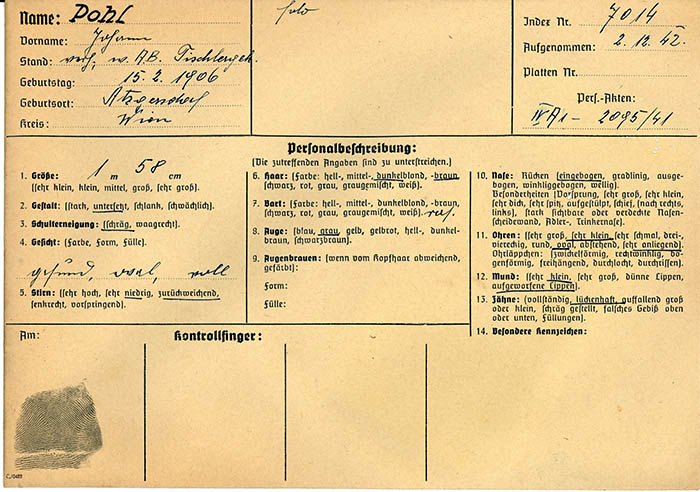 Name: Pohl
Vorname: Johann
Stand: verh., w. A.B. Tischlergeh.
Geburtstag: 15. 2. 1906
Geburtsort: Atzgersdorf
Kreis: Wien
Index Nr. 7014
Aufgenommen: 2. 12. 42.
Platten Nr.
Pers.-Akten:
IV A1 - 2095/41
Personalbeschreibung:
(Die zutreffenden Angaben sind zu unterstreichen.)
1. Größe: 1 m 58 cm
(sehr klein, klein, mittel, groß, sehr groß).
2. Gestalt: (stark, untersetzt, schlank, schwächlich).
3. Schulterneigung: (schräg, waagrecht).
4. Gesicht: (Farbe, Form, Fülle).
gesund, oval, voll
5. Stirn: (sehr hoch, sehr niedrig, zurückweichend,
senkrecht, vorspringend).
6. Haar: (Farbe: hell-, mittel-, dunkelblond, -braun,
schwarz, rot, grau, graugemischt, weiß).
7. Bart: (Farbe: hell-, mittel-, dunkelblond, -braun,
schwarz, rot, grau, graugemischt, weiß). ras.
8. Auge: (blau, grau, gelb, gelbrot, hell-, dunkel-
braun, schwarzbraun).
9. Augenbrauen: (wenn vom Kopfhaar abweichend,
gefärbt):
Form:
Fülle:
10. Nase: Rücken (eingebogen, gradlinig, ausge-
bogen, winkliggebogen, wellig).
Besonderheiten (Vorsprung, sehr groß, sehr klein,
sehr dick, sehr spitz, aufgestülpt, schief, (nach rechts,
links), stark sichtbare oder verdeckte Nasen-
scheidewand, Adler-, Trinkernase).
11. Ohren: (sehr groß, sehr klein, sehr schmal, drei-,
viereckig, rund, oval, abstehend, sehr anliegend).
Ohrläppchen: (zwickelförmig, rechtwinklig, bo-
genförmig, freihängend, durchlocht, durchrissen).
12. Mund: (sehr klein, sehr groß, dünne Lippen,
aufgeworfene Lippen).
13. Zähne: (vollständig, lückenhaft, auffallend groß
oder klein, schräg gestellt, falsches Gebiß oben
oder unten, Füllungen).
14. Besondere Kennzeichen:
Am:
Kontrollfinger: